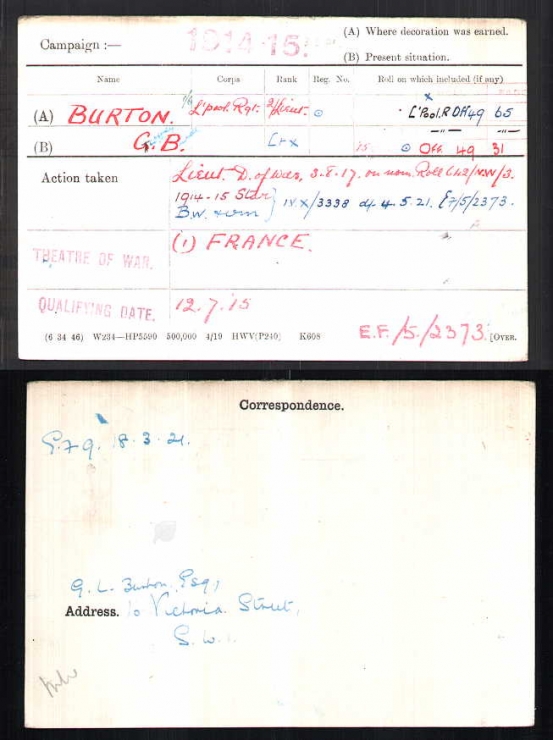 Campaign :— 1914-15
(A) Where decoration was earned.
(B) Present situation.
Name Corps Rank Reg. No. Roll on which included (if any)
(A) BURTON. L'pool. Rgt. 2/Lieut. L'Pool. R DH49 65
(B) G.B. Off 49 31
Action taken Lieut. D. of W. 3.8.17. on nom. Roll
1914-15 Star
B.W. & V.M IV X/3338 4.5.21. E/5/2373.
THEATRE OF WAR. (1) FRANCE.
QUALIFYING DATE. 12.7.15
(6 34 46) W234—HP5590 500,000 4/19 HWV(P240) K608 E.F./5./2373. [OVER.
Correspondence.
8.3.21.
G. L. Burton, Esq,
Address. 10 Victoria Street,
S.W.1.